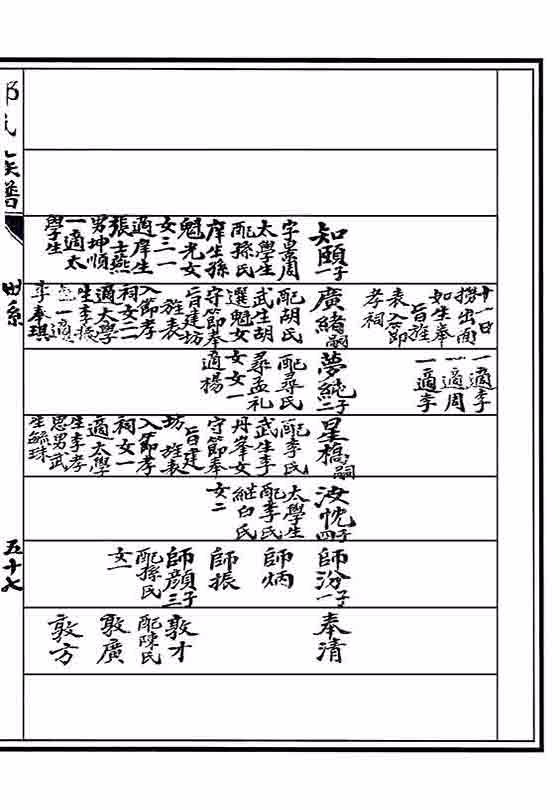 知頤一子
字景周
太學生
配孫氏
庠生孫
魁光女
女三一
適庠生
張士燕
男坤順
一適太
學生
十一日
撈出面
如生奉
旨旌
表入節
孝祠
廣緒嗣
配胡氏
武生胡
選魁女
守節奉
旨建坊
旌表
入節孝
祠女二
適太學
生李振
一適
李奉琪
一適李
一適周
一適李
夢二子
配尋氏
尋孟礼
女女一
適楊
星橋嗣
配李氏
武生李
丹峯女
守節奉
旨建
坊旌表
入節孝
祠女一
適太學
生李孝
思男武
生毓珠
汝忱四子
太學生
配李氏
継白氏
女二
師汾一子
師炳
師振
師顏三子
配孫氏
女一
奉清
敦才
配陳氏
敦廣
敦方
氏族譜
世系
五十七